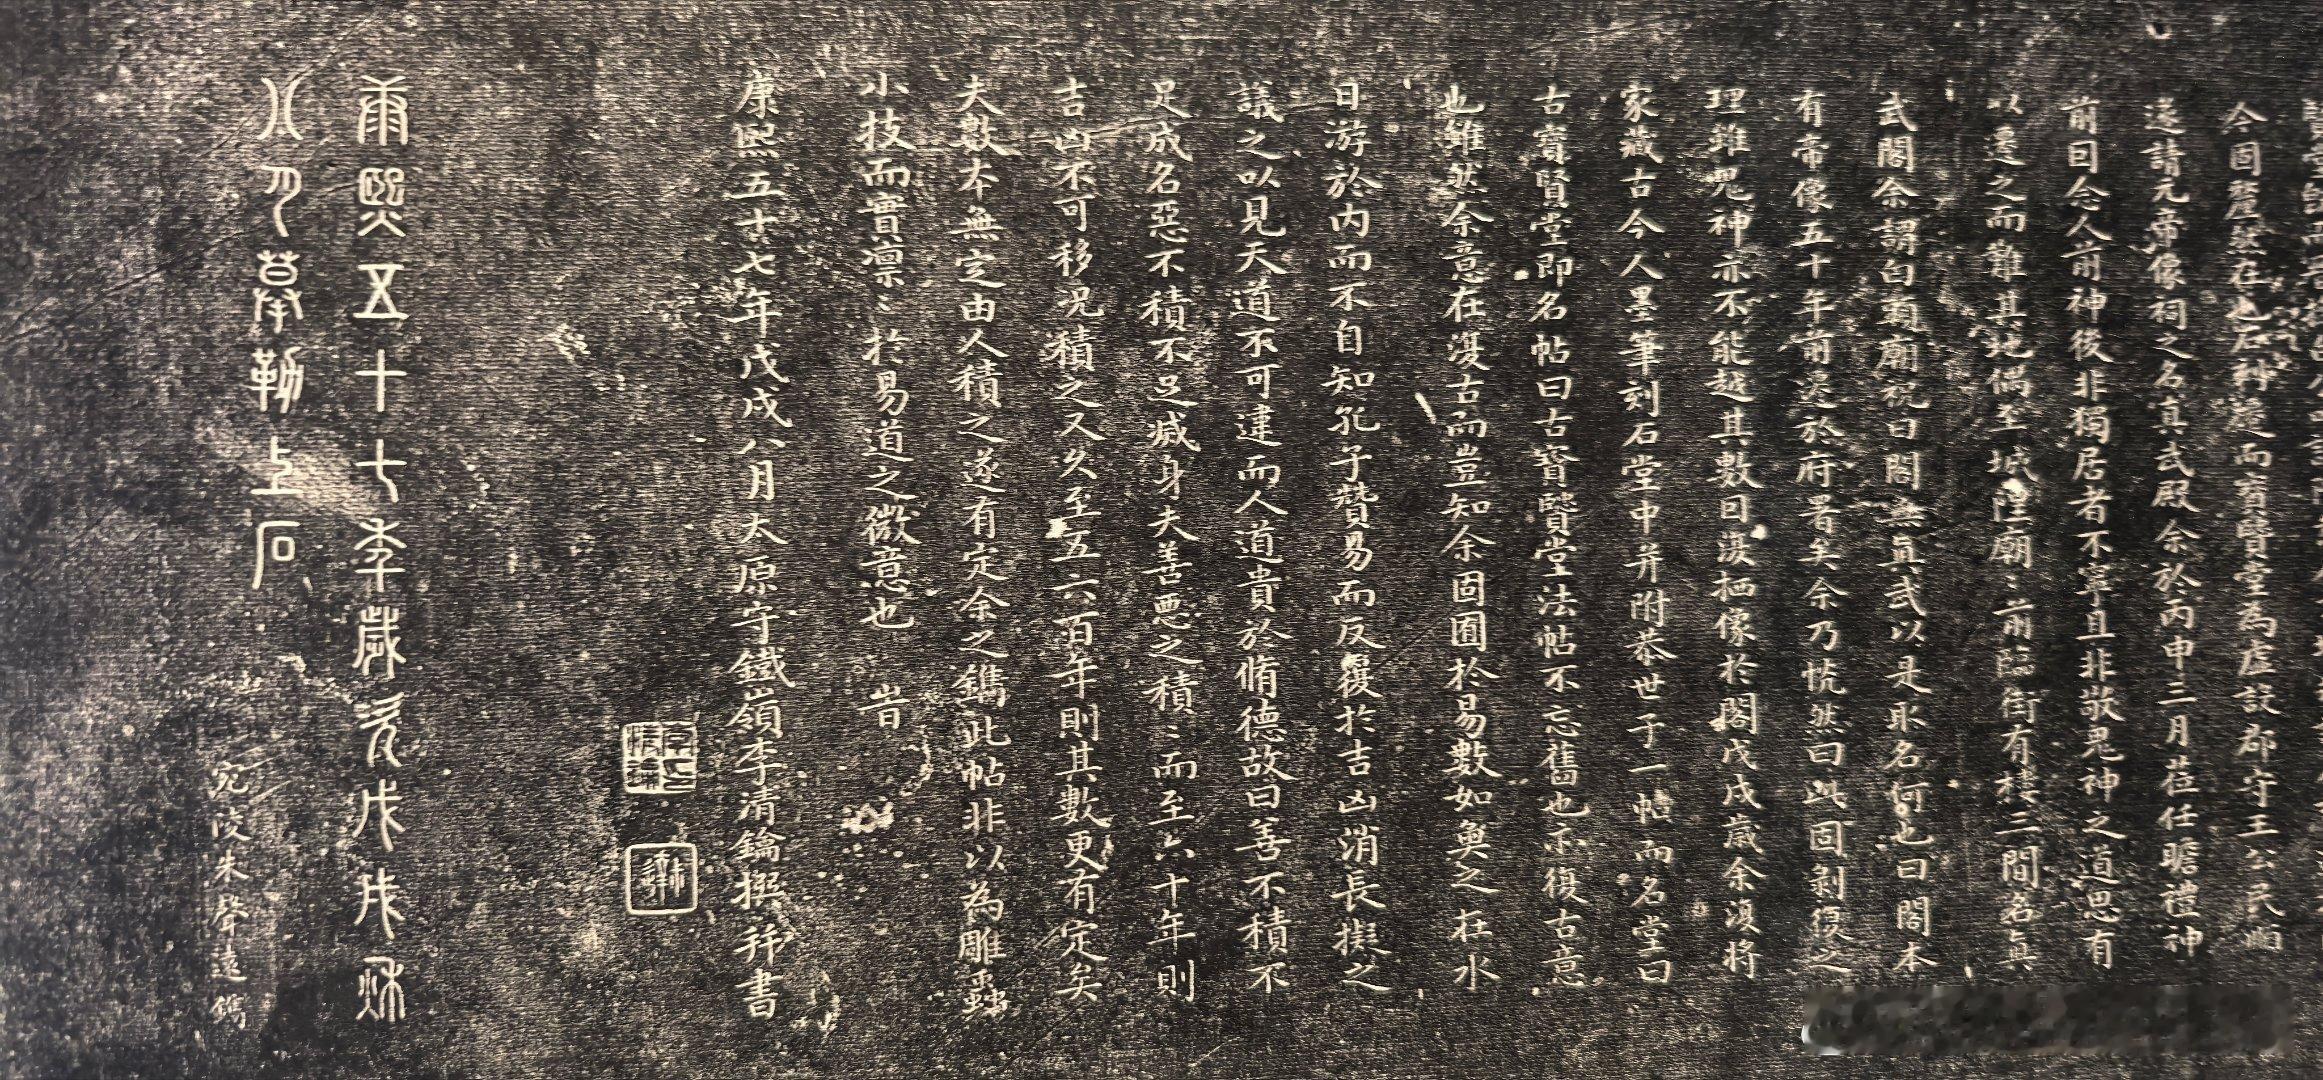 今固蹵然在也石神凝而寶賢堂為虛設郡守王公民順
遂請元帝像祠之名真武殿余於丙申三月莅任瞻禮神
前回念人前神後非獨居者不寧且非敬鬼神之道思有
以遷之而難其地偶至城隍廟〻前臨街有樓三間名真
武閣余謂白顛廟祝曰閣無真武以是取名何也曰閣本
有帝像五十年前遷於府署矣余乃恍然曰此固剝復之
理雖鬼神亦不能越其數回復栖像於閣戊戌歲余復將
家藏古今人墨筆刻石堂中并附恭世子一帖而名堂曰
古寶賢堂即名帖曰古寶賢堂法帖不忘舊也亦復古意
也雖然余意在復古而豈知余固囿於易數如魚之在水
日游於內而不自知孔子贊易而反覆於吉凶消長擬之
議之以見天道不可違而人道貴於脩德故曰善不積不
足成名惡不積不足滅身夫善惡之積〻而至六十年則
吉凶不可移況積之又久至五六百年則其數更有定矣
夫數本無定由人積之遂有定余之鐫此帖非以為雕蟲
小技而實凛〻於易道之微意也 旹
康熙五十七年戊戌八月太原守鐵嶺李清鑰撰并書
康熙五十七年歲次戊戌秋
八月摹勒上石
宛陵朱聲遠鐫